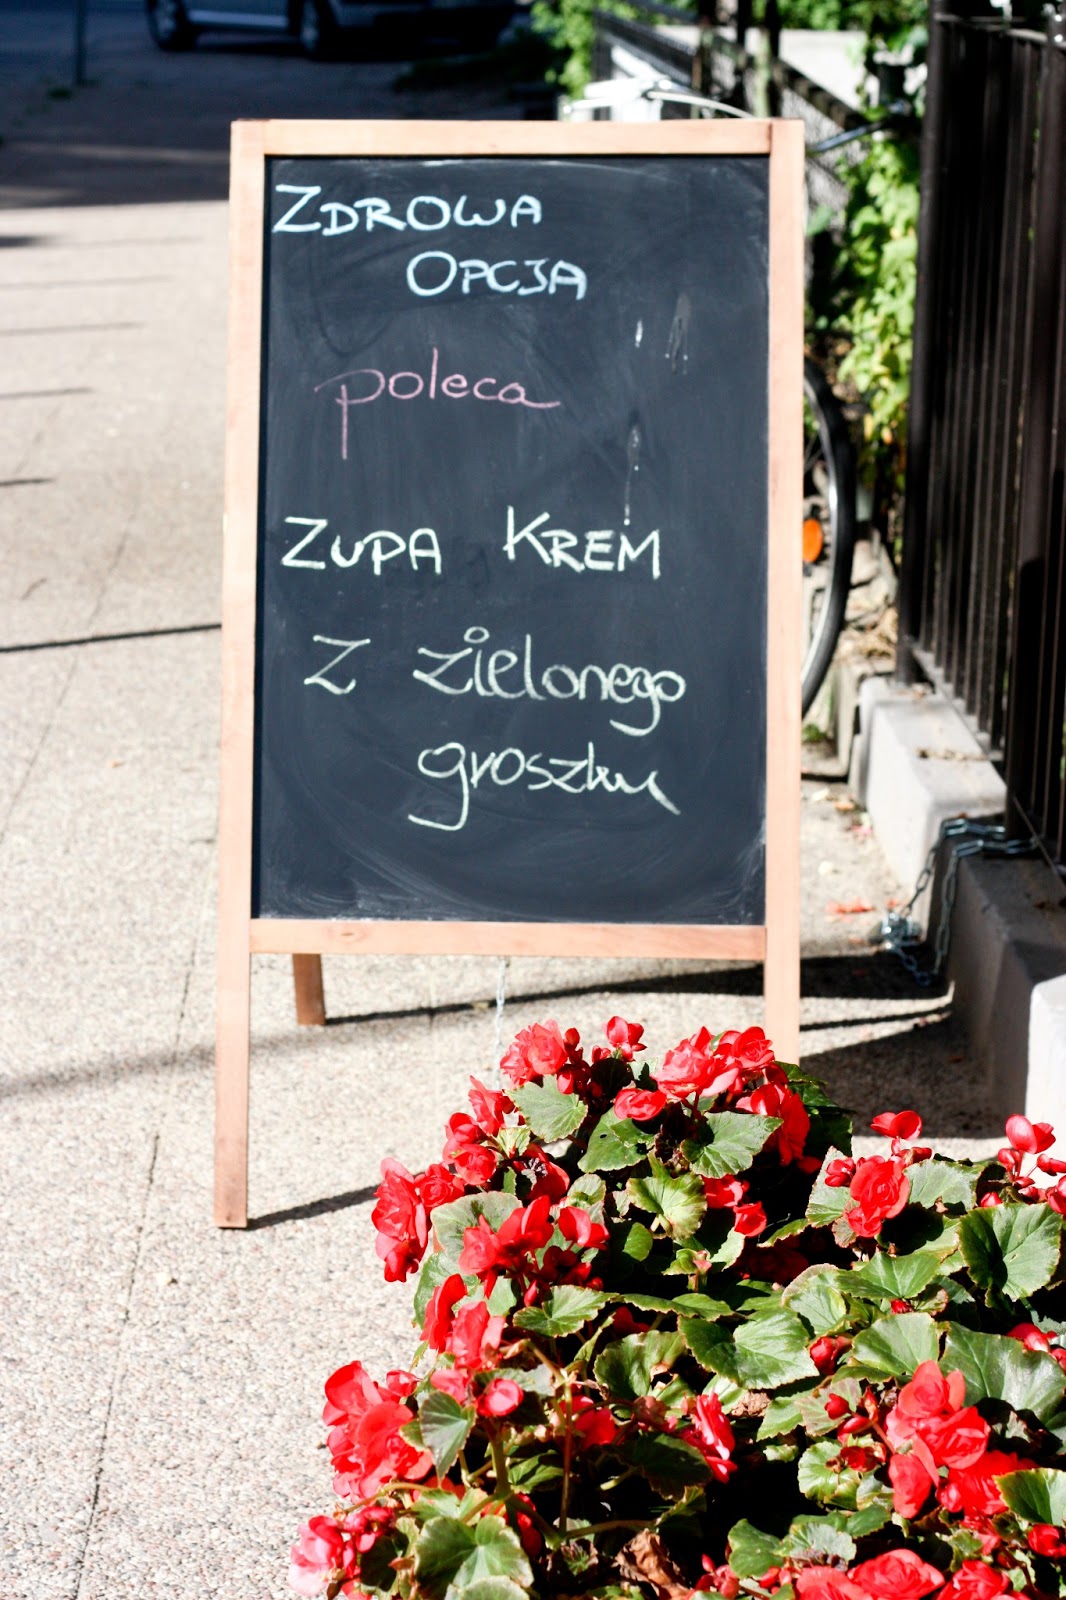 ZDROWA
OPCJA
poleca
ZUPA KREM
Z zielonego
groszku